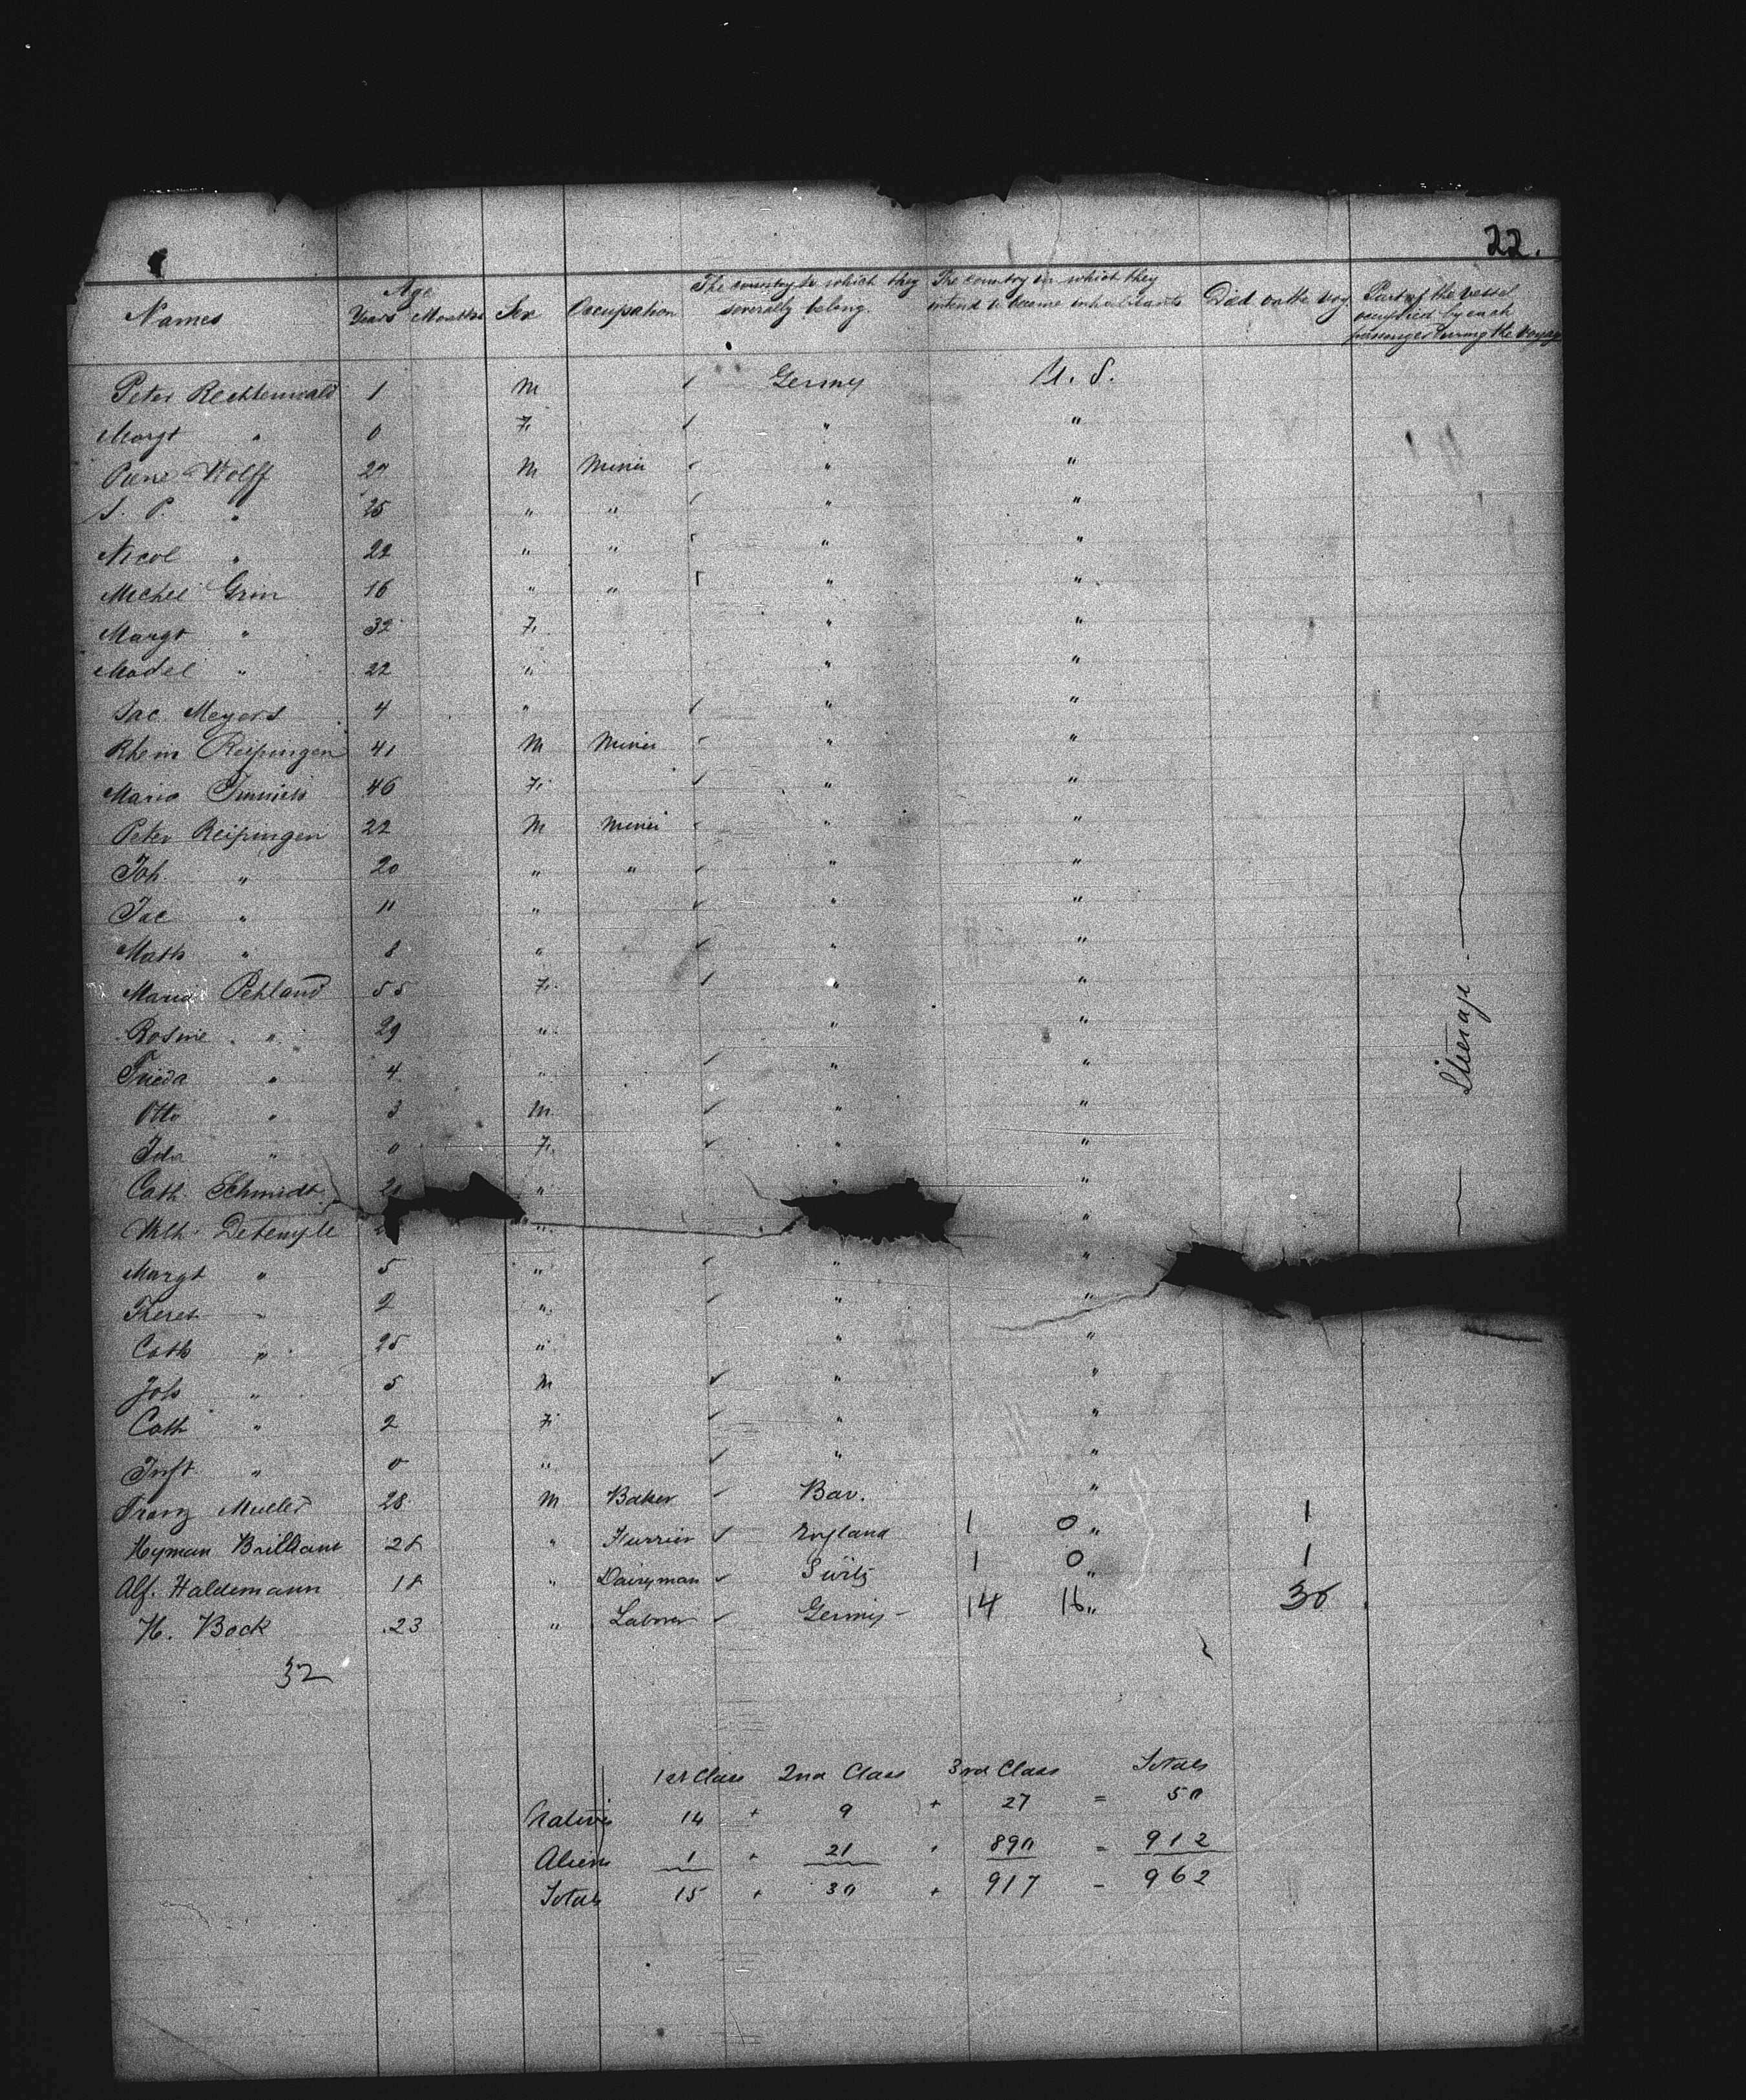 22.
Names Age Years Months Sex Occupation The country to which they severally belong. The country in which they intend to become inhabitants Died on the voy. Part of the vessel occupied by each passenger during the voyage
Peter Rechtenwald 1 M Germy U. S.
Margt " 0 F. " "
Wolff 27 M Miner " "
J. P. " 25 " " " "
Nicol " 22 " " " "
Michel Grim 16 " " " "
Margt " 32 F. " "
Madel " 22 " " "
Jac Meyers 4 " " "
Rhein Reisingen 41 M Miner " "
Maria 46 F. " "
Peter Reisingen 22 M Miner " "
Joh. " 20 " " " "
Jac " 11 " " "
Math " 8 " " "
Maria Pehland 55 F. " "
Rosine " 29 " " "
Frieda " 4 " " "
Otto " 3 M " "
Ida " 0 F. " "
Cath. Schmidt " " "
Detemple " "
Margt " 5 " " "
Theres " 2 " " "
Cath " 25 " " "
Joh " 5 M " "
Cath " 2 F " "
Inft " 0 " " "
Franz Muller 28 M Baker Bav. "
Hyman Brilliant 28 " Furrier England 1 0 " 1
Alf. Haldemann 18 " Dairyman Switz 1 0 " 1
H. Bock 23 " Laborer Germy 14 16 " 30
Steerage
32
1st Class 2nd Class 3rd Class Totals
Natives 14 + 9 + 27 = 50
Aliens 1 + 21 + 890 = 912
Totals 15 + 30 + 917 - 962